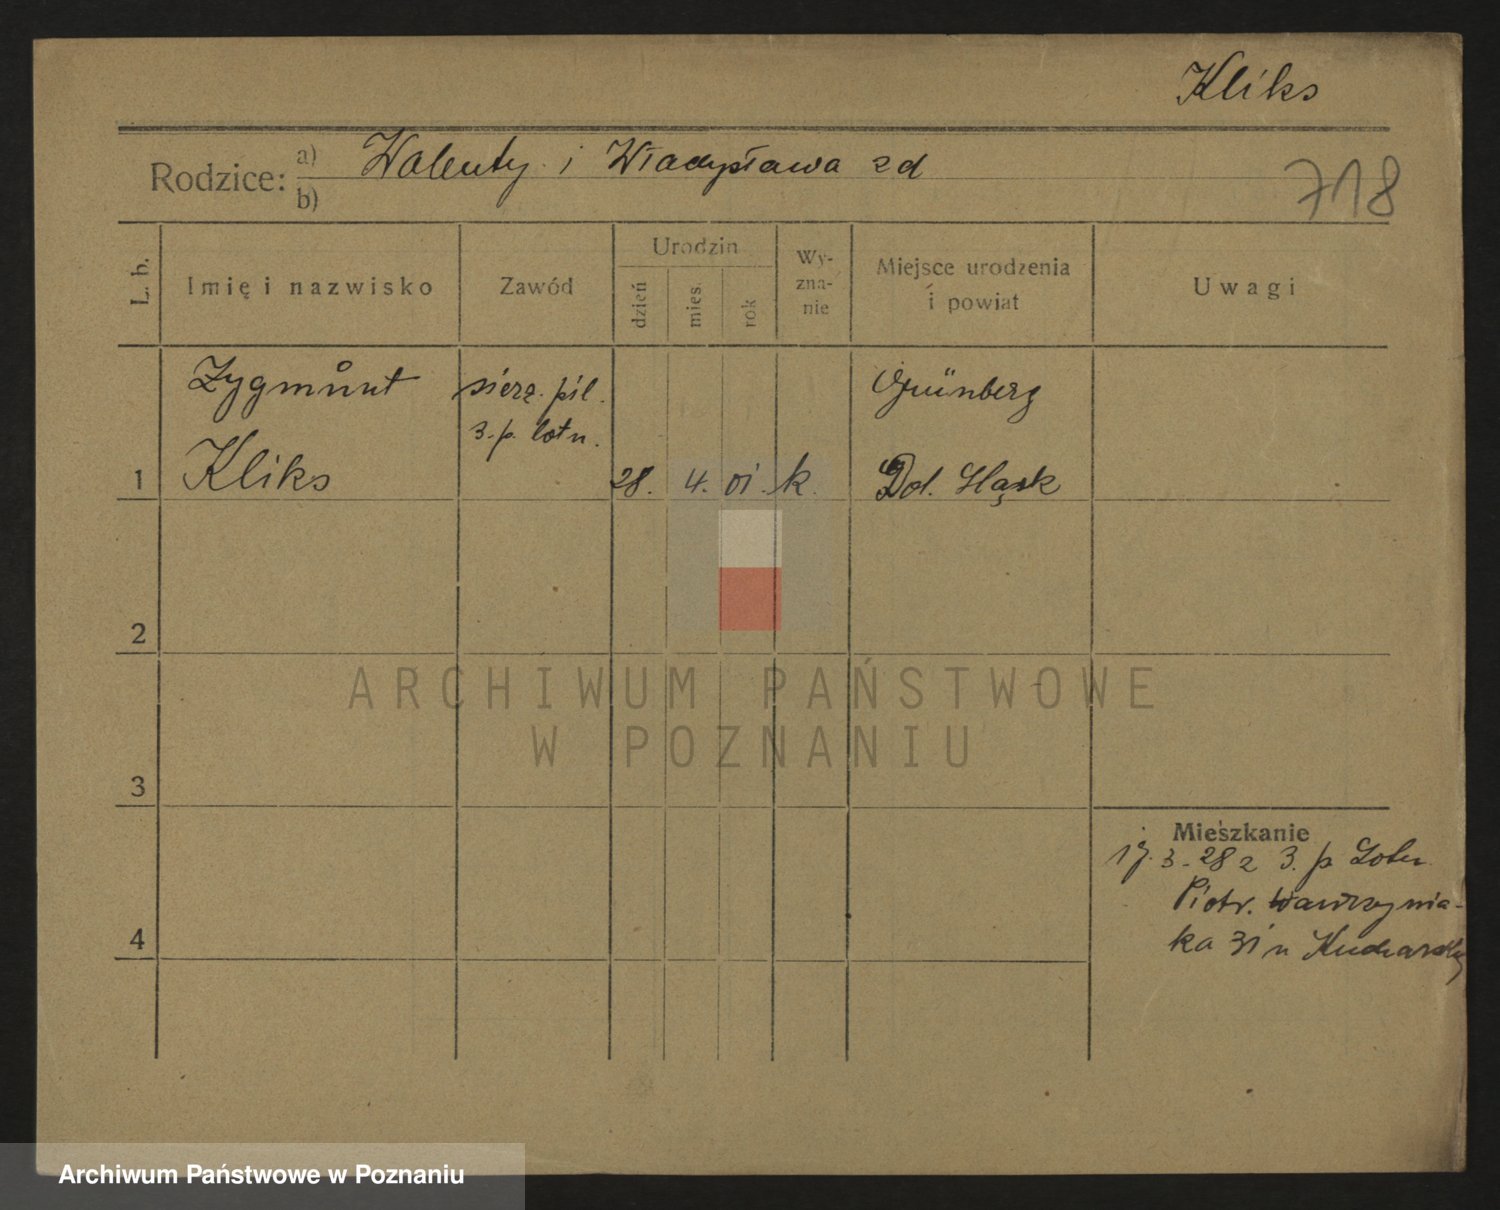 Kliks
Rodzice: a) Walenty i Władysława zd
b)
718
L. b.
Imię i nazwisko
Zawód
Urodzin
dzień
mies.
rok
Wy-
zna-
nie
Miejsce urodzenia
i powiat
Uwagi
Zygmunt
sierż. pil.
Grünberg
3. p. lotn.
1 Kliks 28. 4. 01. k. Dol. Sląsk
2
ARCHIWUM PAŃSTWOWE
W POZNANIU
3
Mieszkanie
3-28 z 3. p Lotn
Piotr. Wawrzynia-
4
ka 31 u Kucharsky
Archiwum Państwowe w Poznaniu